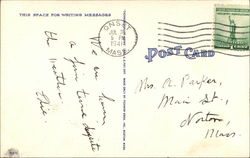 THIS SPACE FOR WRITING MESSAGES
ONSET
MASS.
POST CARD
We are having
a fine time despite
the weather
Mrs. A. Parker,
Main St.,
Norton,
Mass.